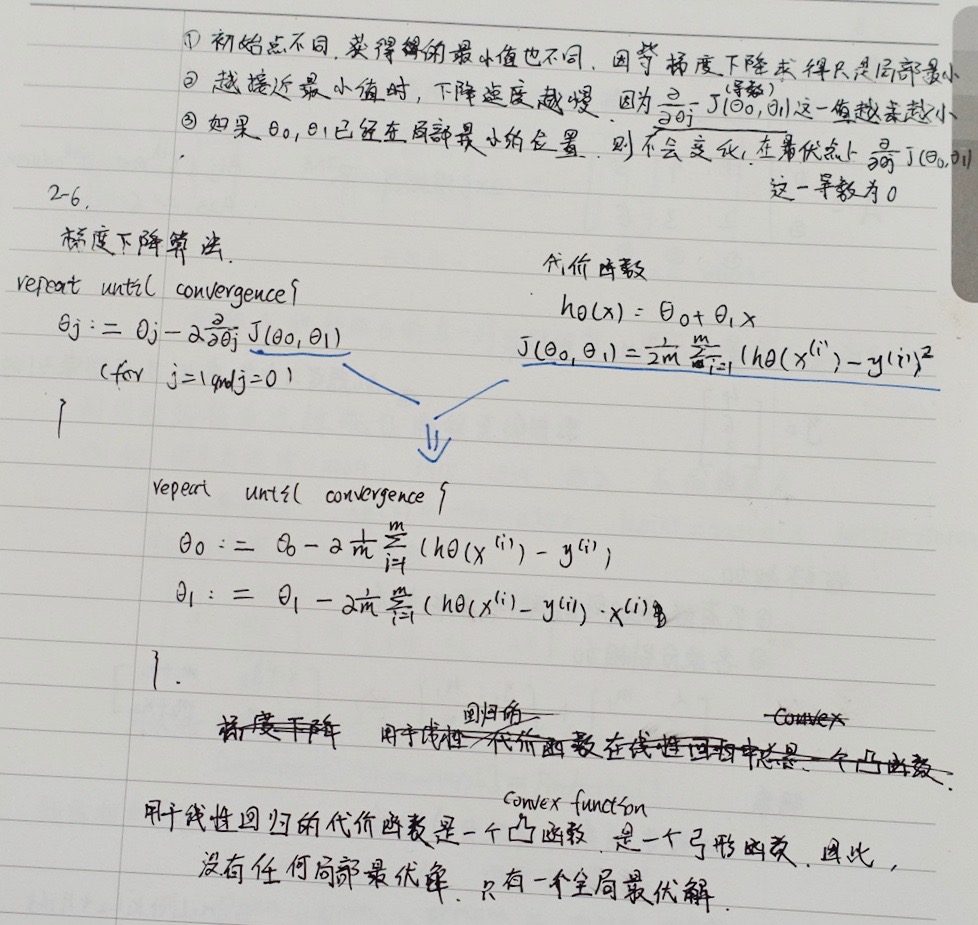 ① 初始点不同,获得的最小值也不同,因为梯度下降求得只是局部最小
② 越接近最小值时,下降速度越慢.因为 ∂/∂θj J(θ0,θ1)(导数)这一值越来越小
③ 如果 θ0,θ1已经在局部最小的位置.则不会变化,在最优点上 ∂/∂θj J(θ0,θ1)
这一导数为0
2-6.
梯度下降算法.
repeat until convergence{
θj := θj - α ∂/∂θj J(θ0,θ1)
(for j=1 and j=0)
}
代价函数
hθ(x) = θ0 + θ1x
J(θ0,θ1) = 1/2m Σ_{i=1}^{m} (hθ(x^(i)) - y^(i))^2
repeat until convergence {
θ0 := θ0 - α 1/m Σ_{i=1}^{m} (hθ(x^(i)) - y^(i))
θ1 := θ1 - α 1/m Σ_{i=1}^{m} (hθ(x^(i) - y^(i)) · x^(i)
}.
回归的 convex
梯度下降 用于线性代价函数在线性回归中总是一个凸函数.
convex function
用于线性回归的代价函数是一个凸函数.是一个弓形函数.因此,
没有任何局部最优解.只有一个全局最优解.